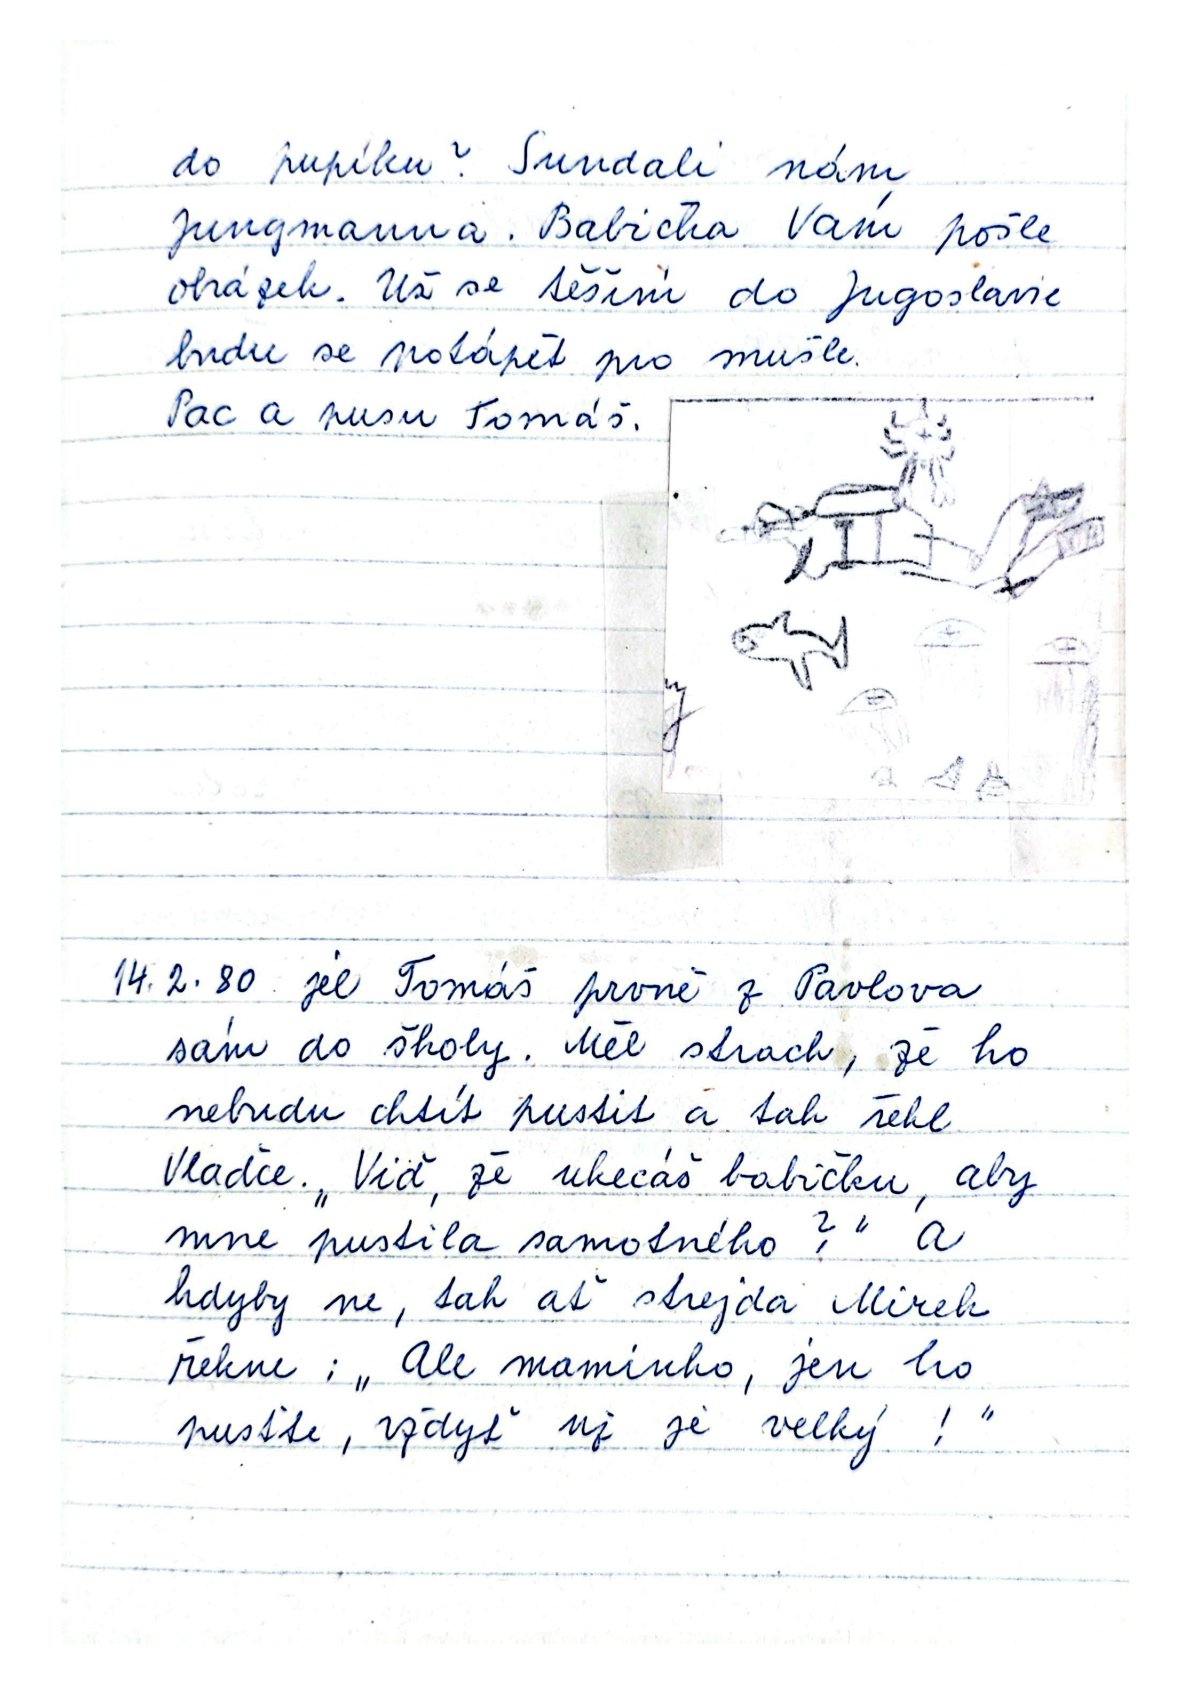 do pupíku? Sundali nám
Jungmanna. Babička Vám pošle
obrázek. Už se těším do Jugoslavie
budu se potápět pro mušle.
Pac a pusu Tomáš.
14. 2. 80 jel Tomáš prvně z Pavlova
sám do školy. Měl strach, že ho
nebudu chtít pustit a tak řekl
Vladce. „Viď, že ukecáš babičku, aby
mne pustila samotného?" A
kdyby ne, tak ať strejda Mirek
řekne: „Ale maminko, jen ho
pusťte, vždyť už je velký!"